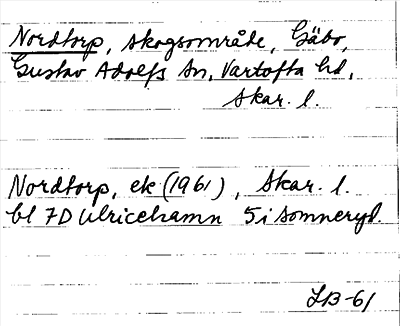 Nordtorp, skogsområde, Gäbo,
Gustav Adolfs sn, Vartofta hd,
Skar. l.
Nordtorp, ek (1961), Skar. l.
bl 7D Ulricehamn 5i Somneryd.
LB-61